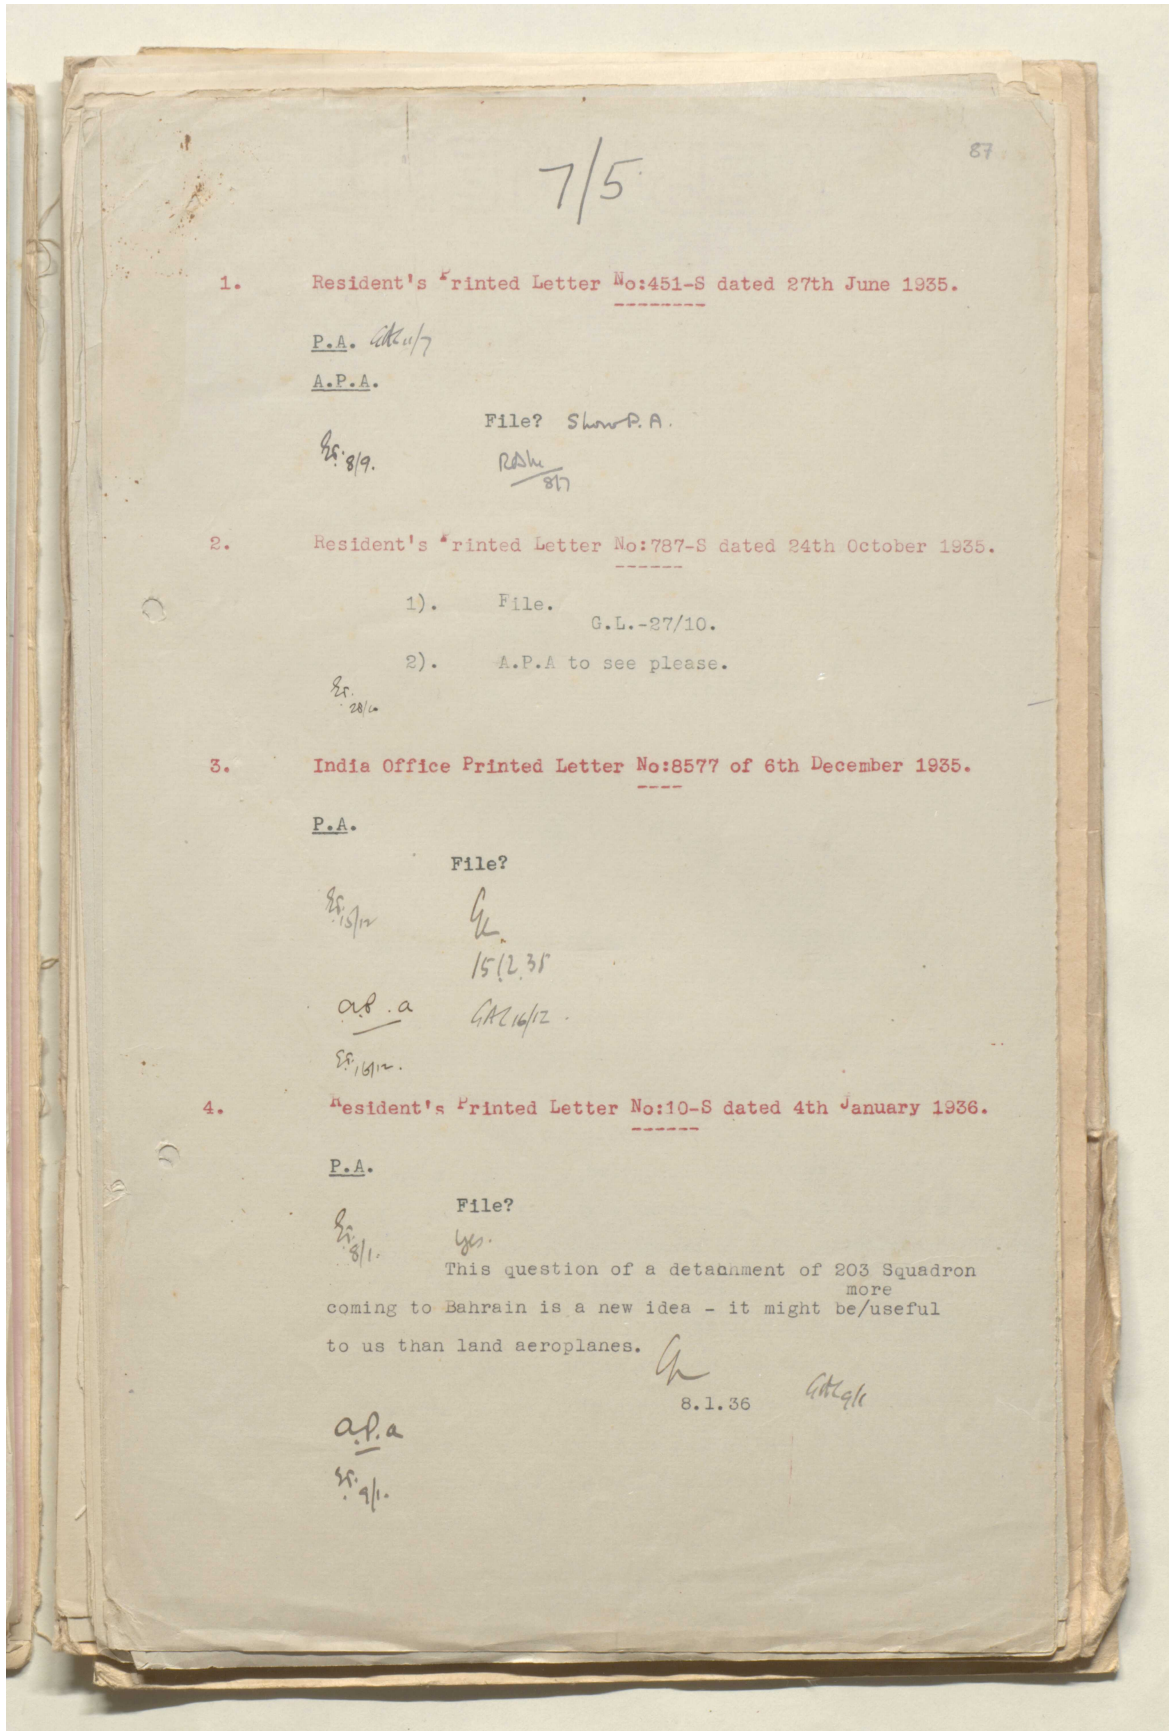 87
7/5
1. Resident's Printed Letter No:451-S dated 27th June 1935.
P.A. GAL 11/7
A.P.A.
File? Show P.A.
8/9.
8/7
2. Resident's Printed Letter No:787-S dated 24th October 1935.
1). File.
G.L.-27/10.
2). A.P.A to see please.
28/10
3. India Office Printed Letter No:8577 of 6th December 1935.
P.A.
File?
15/12
15.12.35
a.P.a GAL 16/12.
16/12.
4. Resident's Printed Letter No:10-S dated 4th January 1936.
P.A.
File?
8/1. Yes.
This question of a detachment of 203 Squadron
more
coming to Bahrain is a new idea - it might be/useful
to us than land aeroplanes.
8.1.36 GAL 9/1
a.P.a
9/1.